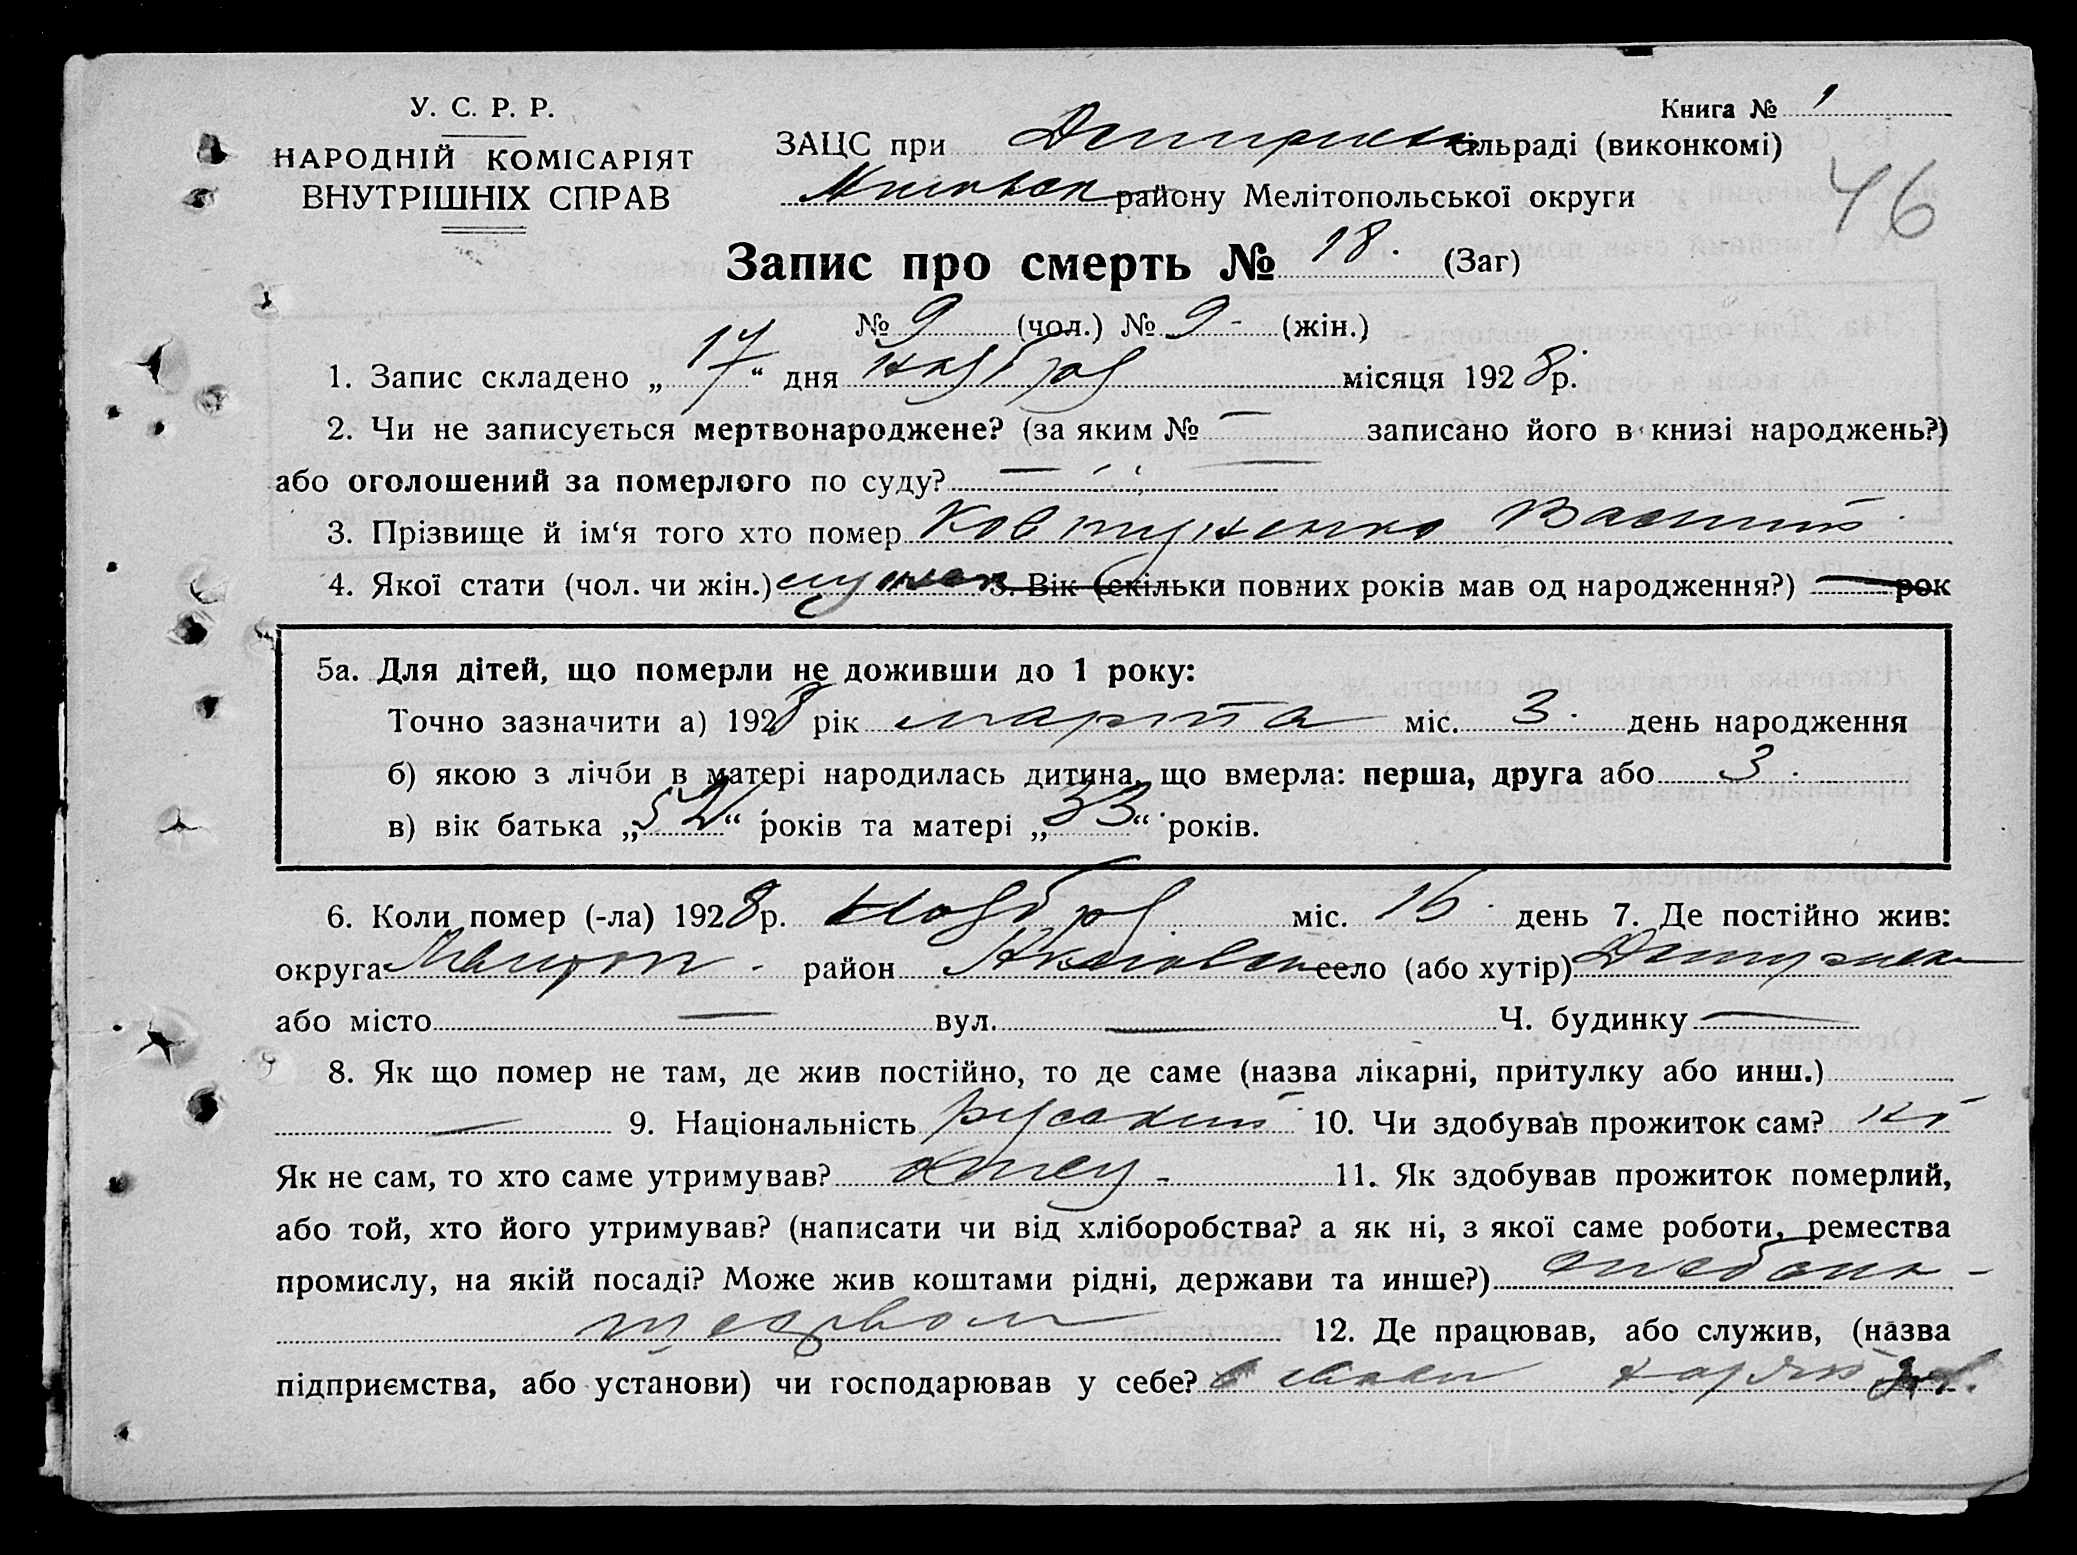 У. С. Р. Р.
НАРОДНІЙ КОМІСАРІЯТ
ВНУТРІШНІХ СПРАВ
Книга № 1
ЗАЦС при сільраді (виконкомі)
району Мелітопольської округи
46
Запис про смерть № 18. (Заг)
№ 9 (чол.) № 9 - (жін.)
1. Запис складено „ 17 “ дня ноября місяця 1928 р.
2. Чи не записується мертвонароджене? (за яким № — записано його в книзі народжень?)
або оголошений за померлого по суду? —
3. Прізвище й ім‘я того хто помер Ковтуненко Василий
4. Якої стати (чол. чи жін.) мужск 5. Вік (скільки повних років мав од народження?) — рок
5а. Для дітей, що померли не доживши до 1 року:
Точно зазначити а) 1928 рік марта міс. 3 день народження
б) якою з лічби в матері народилась дитина, що вмерла: перша, друга або 3
в) вік батька „ 52 “ років та матері „ 33 “ років.
6. Коли помер (-ла) 1928 р. ноября міс. 16 день 7. Де постійно жив:
округа Мелитоп район Акимовск село (або хутір)
або місто — вул. — Ч. будинку —
8. Як що помер не там, де жив постійно, то де саме (назва лікарні, притулку або инш.)
— 9. Національність русский 10. Чи здобував прожиток сам?
Як не сам, то хто саме утримував? отец - 11. Як здобував прожиток померлий,
або той, хто його утримував? (написати чи від хліборобства? а як ні, з якої саме роботи, ремества
промислу, на якій посаді? Може жив коштами рідні, держави та инше?) хлебопа-
шеством 12. Де працював, або служив, (назва
підприємства, або установи) чи господарював у себе? в своем